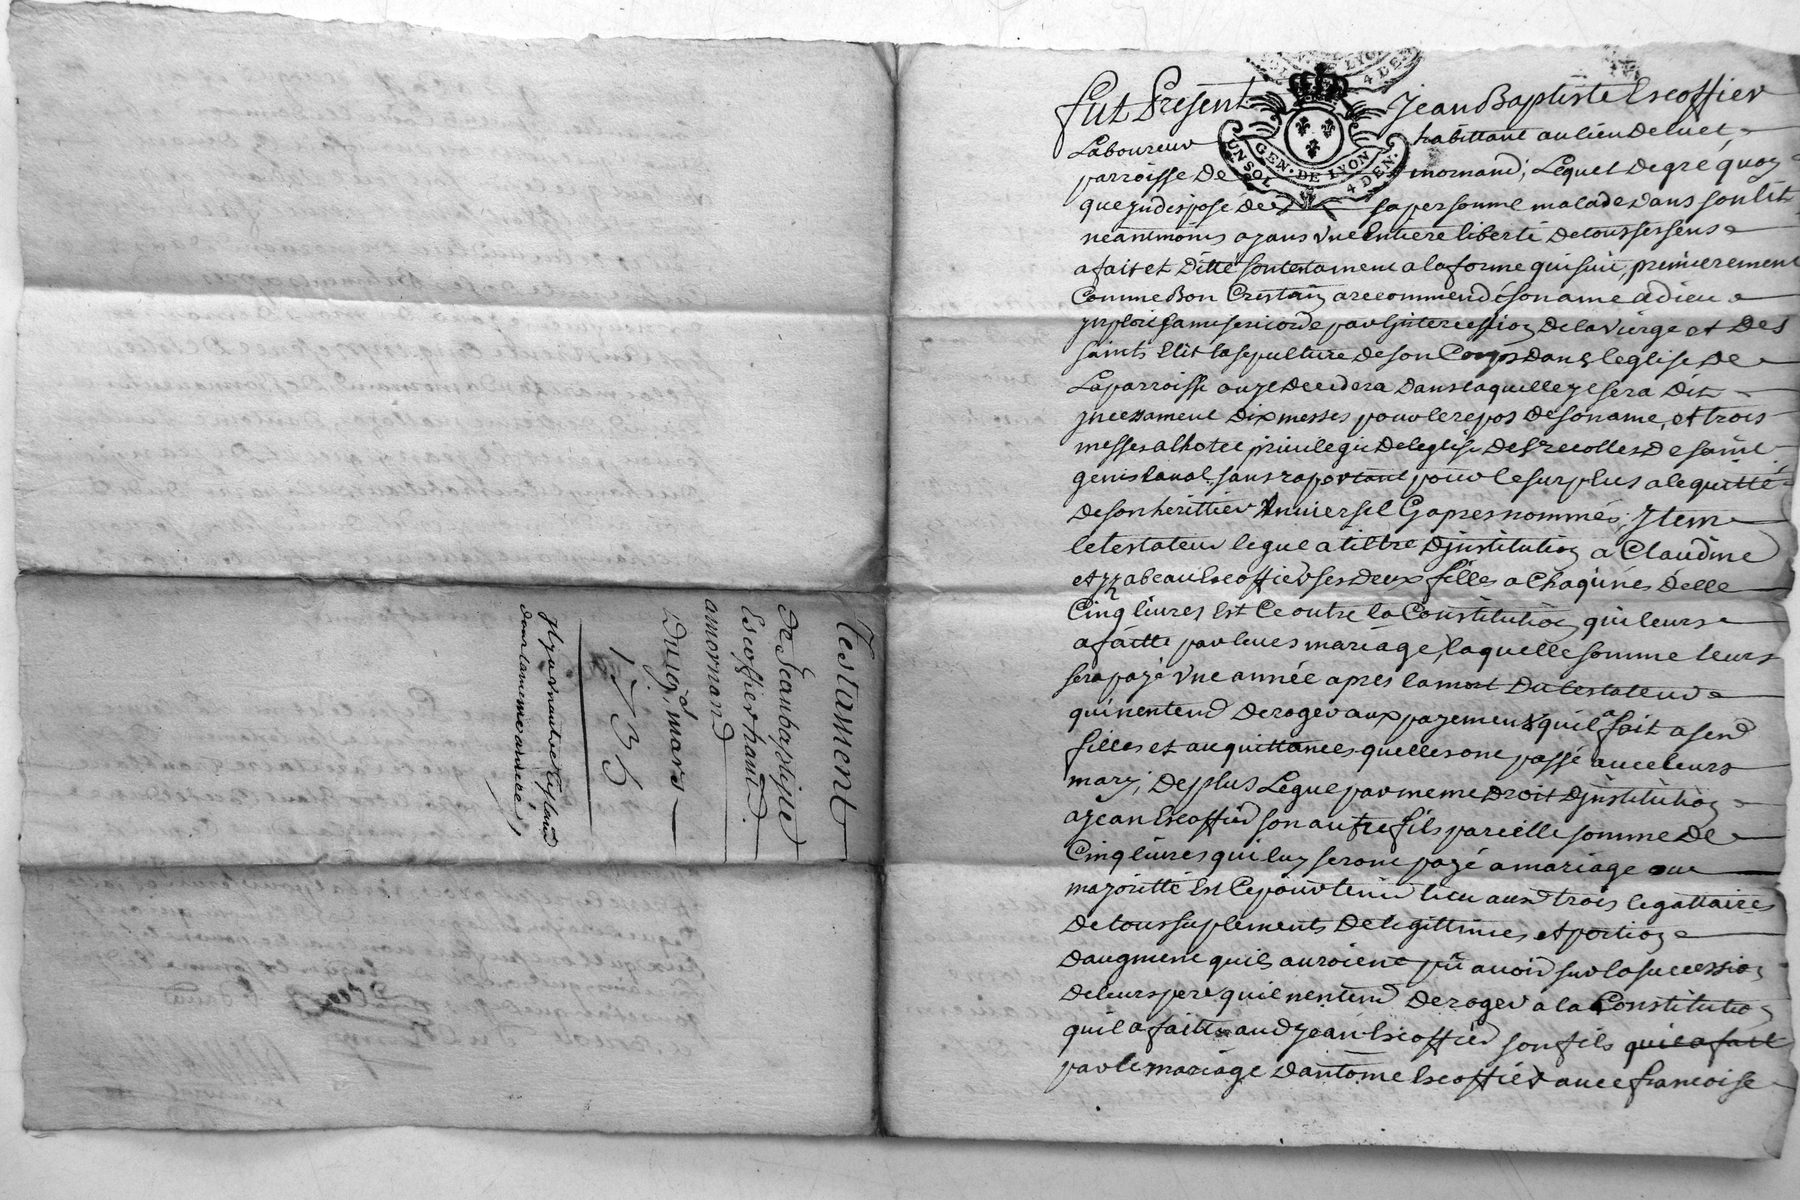 Testament
de Jeanbaptiste
Escoffier haut d.
amornand
Du 19 mars
1735
Il y a un autre testamt
dans la meme année,
GEN. DE LYON
UN SOL 4 DEN.
fut Present Jean Baptiste Escoffier
Laboureur habittant au lieu de luet
parroisse de mornand, Lequel de gré quoy
que jndispose de sa personne malade dans son lit
neantmoins ayans vne Entiere liberté de tous ses sens
a fait et ditté son testament a la forme qui suit, premierement
Comme Bon Crestain a recommendé son ame a dieu
jmploré sa misericorde par ljntercession de la vierge et des
saints Elit la sepulture de son Corps dans leglise de
La parroisse ou ye decedera dans laquelle ye sera dit
jncessament dix messes pour le repos de son ame, et trois
messes alhotel privilegie de leglise des recolles de saint
genis laval sans raportant pour le surplus a lequitté
de son herittier Vniversel Cy apres nommé, Jtem
le testateur legue a tiltre djnstitution a Claudine
et yzabeau Escoffier ses deux filles a Chaqunes delle
Cinq livres Est Ce outre la Constitution qui leurs
a faitte par leurs mariage, laquelle somme leurs
sera payé vne année apres la mort du testateur
qui nentend deroger aux payement quil a fait a send
filles et au quittances quelles ont passé avec leurs
mary, de plus Legue par meme droit djnstitution
a jean Escoffier son autre fils pareille somme de
Cinq livres qui luy seront payé a mariage ou
majoritté Est Ce pour tenir lieu ausd trois legattaires
de tous suplements de legittimes et portion
daugment quils auroient pû avoir sur la succession
de leurs pere quil nentend deroger a la Constitution
quil a faitte aud jean Escoffier son fils quil a fait
par le mariage dantoine Escoffier avec francoise